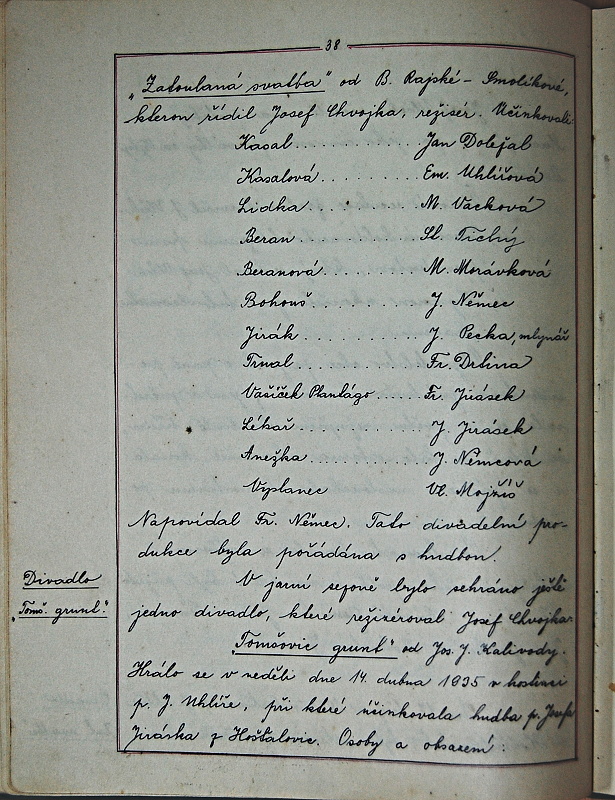 38
„Zatoulaná svatba" od B. Rajské-Smolíkové,
kterou řídil Josef Chvojka, režisér. Účinkovali:
Kasal .............. Jan Doležal
Kasalová .......... Em. Uhlířová
Lidka .............. M. Vacková
Beran .............. Sl. Tichý
Beranová .......... M. Morávková
Bohouš ............ J. Němec
Jirák .............. J. Pecka, mlynář
Trnal .............. Fr. Drlina
Vašíček Plantágo ..... Fr. Jirásek
Lékař .............. J. Jirásek
Anežka ............ J. Němcová
Vyslanec Vl. Mojžíš
Napovídal Fr. Němec. Tato divadelní pro-
dukce byla pořádána s hudbou.
V jarní sezoně bylo sehráno ještě
Divadlo
jedno divadlo, které režizéroval Josef Chvojka.
„Tomš. grunt."
„Tomšovic grunt" od Jos. J. Kalivody.
Hrálo se v neděli dne 14. dubna 1935 v hostinci
p. J. Uhlíře, při které účinkovala hudba p. Josefa
Jiráska z Hošťalovic. Osoby a obsazení: